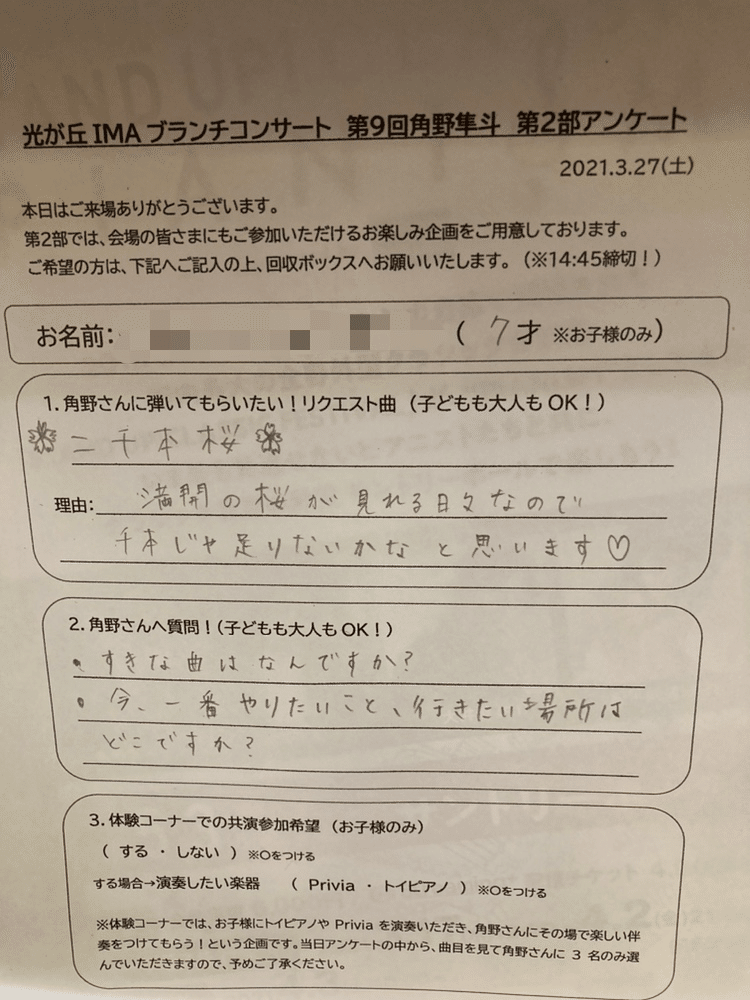 光が丘 IMA ブランチコンサート 第9回角野隼斗 第2部アンケート
2021.3.27(土)
本日はご来場ありがとうございます。
第2部では、会場の皆さまにもご参加いただけるお楽しみ企画をご用意しております。
ご希望の方は、下記へご記入の上、回収ボックスへお願いいたします。(※14:45締切!)
お名前: ( 7才 ※お子様のみ)
1. 角野さんに弾いてもらいたい!リクエスト曲 (子どもも大人も OK!)
二千本桜
理由: 満開の桜が見れる日々なので
千本じゃ足りないかなと思います♡
2. 角野さんへ質問!(子どもも大人も OK!)
・すきな曲はなんですか?
・今、一番やりたいこと、行きたい場所は
どこですか?
3. 体験コーナーでの共演参加希望 (お子様のみ)
( する ・ しない ) ※○をつける
する場合→演奏したい楽器 ( Privia ・ トイピアノ ) ※○をつける
※体験コーナーでは、お子様にトイピアノや Privia を演奏いただき、角野さんにその場で楽しい伴
奏をつけてもらう!という企画です。当日アンケートの中から、曲目を見て角野さんに 3 名のみ選
んでいただきますので、予めご了承ください。